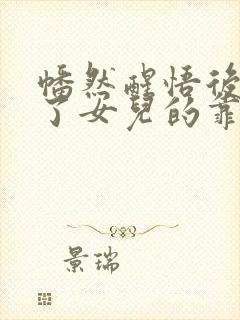 幡然醒悟後
了女兒的靠
景瑞